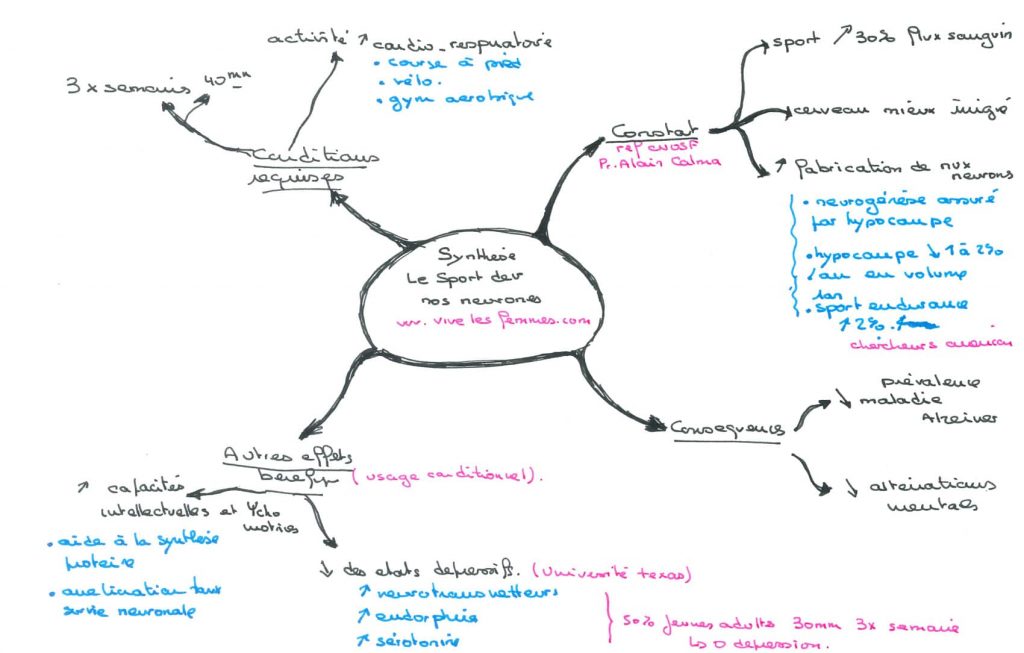 Synthese
Le Sport dev
nos neurones
www.vivelesfemmes.com
Constat
ref CNOSF
Pr. Alain Calma
sport ↗ 30% flux sanguin
cerveau mieux irrigé
↗ fabrication de nvx
neurons
• neurogénèse assuré
par hypocampe
• hypocampe ↓ 1 à 2%
/an en volume
• sport endurance
↑ 2%.
chercheurs
Consequences
↓ prévalence
maladie
Alzeimer
↓ altérations
mentales
Autres effets
(usage conditionnel).
↗ capacités
intellectuelles et Ψcho
motrices
• aide à la synthese
proteine
• amelioration taux
survie neuronale
↓ des etats depressifs. (Université texas)
↗ neurotransmetteurs
↗ endorphine
↗ sérotonine
50% jeunes adults 30mn 3x semaine
↳ 0 depression.
Conditions
requises
3 x semaine 40mn
activité ↗ cardio-respiratoire
• course à pied
• vélo.
• gym aerobique